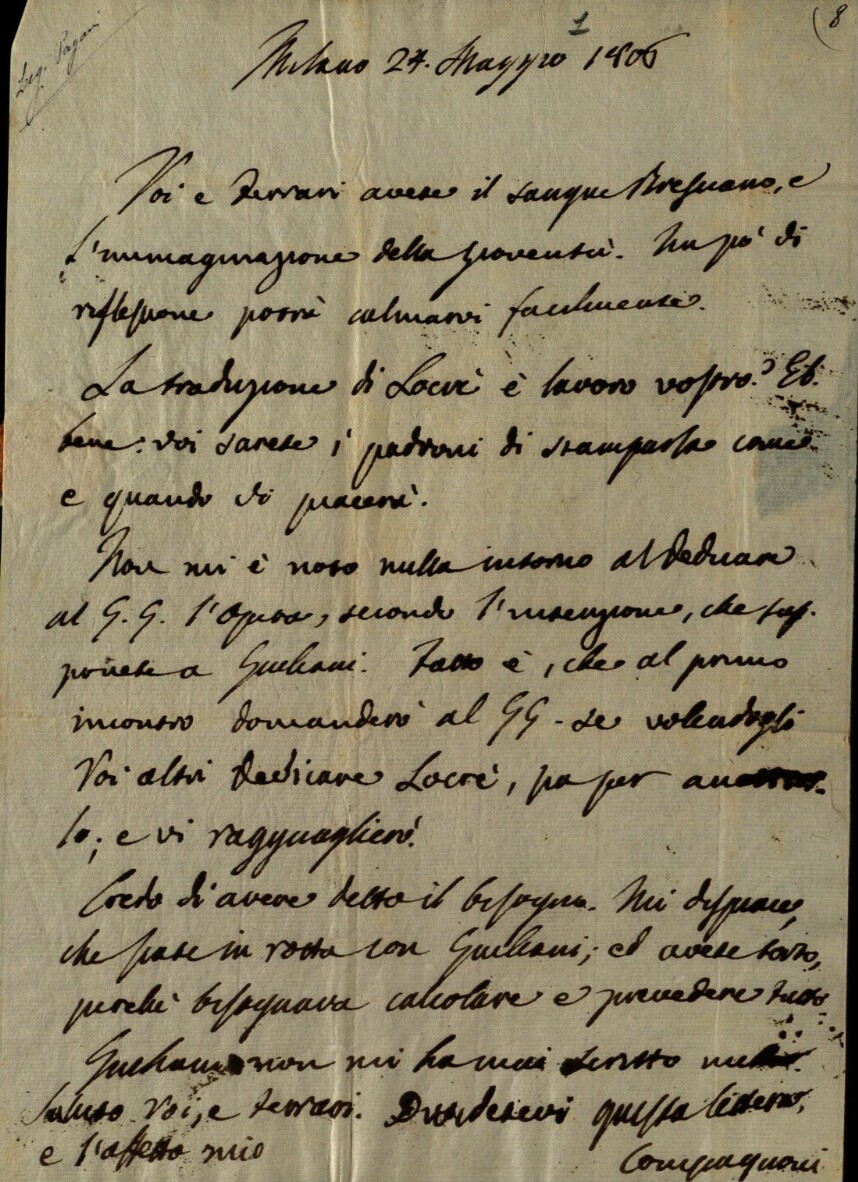 (8
1
Leg. Pagani
Milano 24. Maggio 1806
Voi e Ferrari avete il sangue Bresciano, e
l'immaginazione della gioventù. Un pò di
riflessione potrà calmarvi facilmente.
La traduzione di Locrè è lavoro vostro? Eb-
bene: voi sarete i padroni di stamparla come
e quando vi piacerà.
Non mi è noto nulla intorno al dedicare
al G. G. l'Opera, secondo l'intenzione, che sup-
ponete a Giuliani. Fatto è, che al primo
incontro domanderò al GG. se volendogli
Voi altri dedicare Locrè, sia per
lo; e vi ragguaglierò.
Credo di avere detto il bisogno. Mi dispiace,
che siate in rotta con Giuliani; ed avete torto,
perchè bisognava calcolare e prevedere tutto
Giuliani non mi ha mai scritto nulla.
Saluto Voi, e Ferrari. Dividetevi questa lettera,
e l'affetto mio
Compagnoni